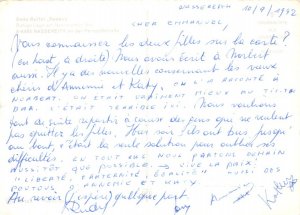 AMSTERDAM 10/9/1982
CHER EMMANUEL,
Vous connaissez les deux filles sur la carte?
(en haut, à droite) Nous avons écrit à Norbert
aussi. Il y a des nouvelles concernant les vieux
chers d'Annemie et Katy, on l'a raconté à
NORBERT, on était vraiment mieux au
mal. C'était terrible ici. Nous voulions
tout de suite repartir à cause des gens qui ne veulent
pas quitter les filles. Hier soir, ils ont bus jusqu'
au bout, c'était la seule solution pour oublier ses
difficultés. EN TOUT CAS NOUS PARTONS DEMAIN
AUSSITÔT QUE POSSIBLE. VIVE LA PAIX
"LIBERTÉ, FRATERNITÉ, ÉGALITÉ" AUSSI DES
ANNEMIE ET KATY
Au revoir (j'espère) quelque part